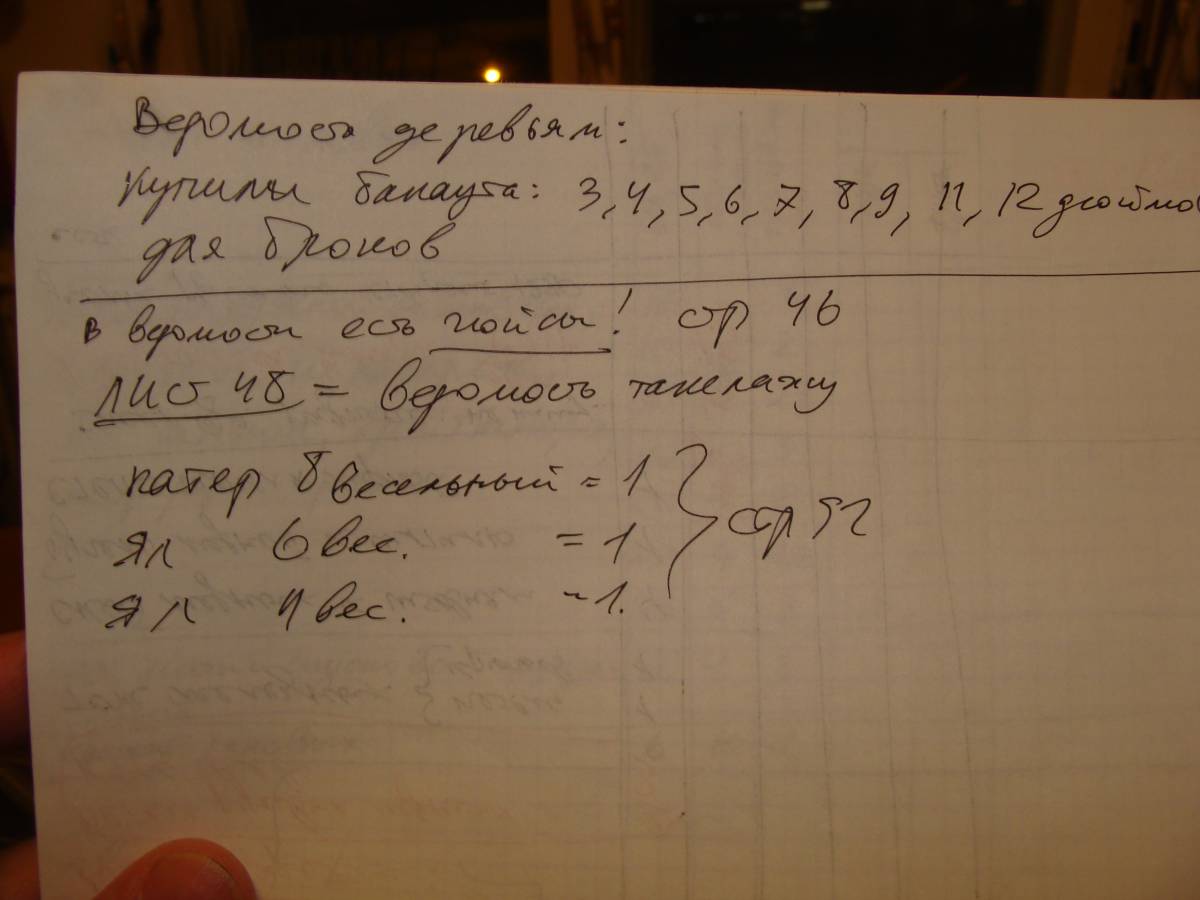 Ведомость деревьям:
купили бакаута: 3, 4, 5, 6, 7, 8, 9, 11, 12 дюймо
для блоков
в ведомости есть гюйсы! стр 46
ЛИСТ 48 = ведомость такелажу
катер 8 весельный = 1
ял 6 вес. = 1
ял 4 вес. - 1.
стр 52